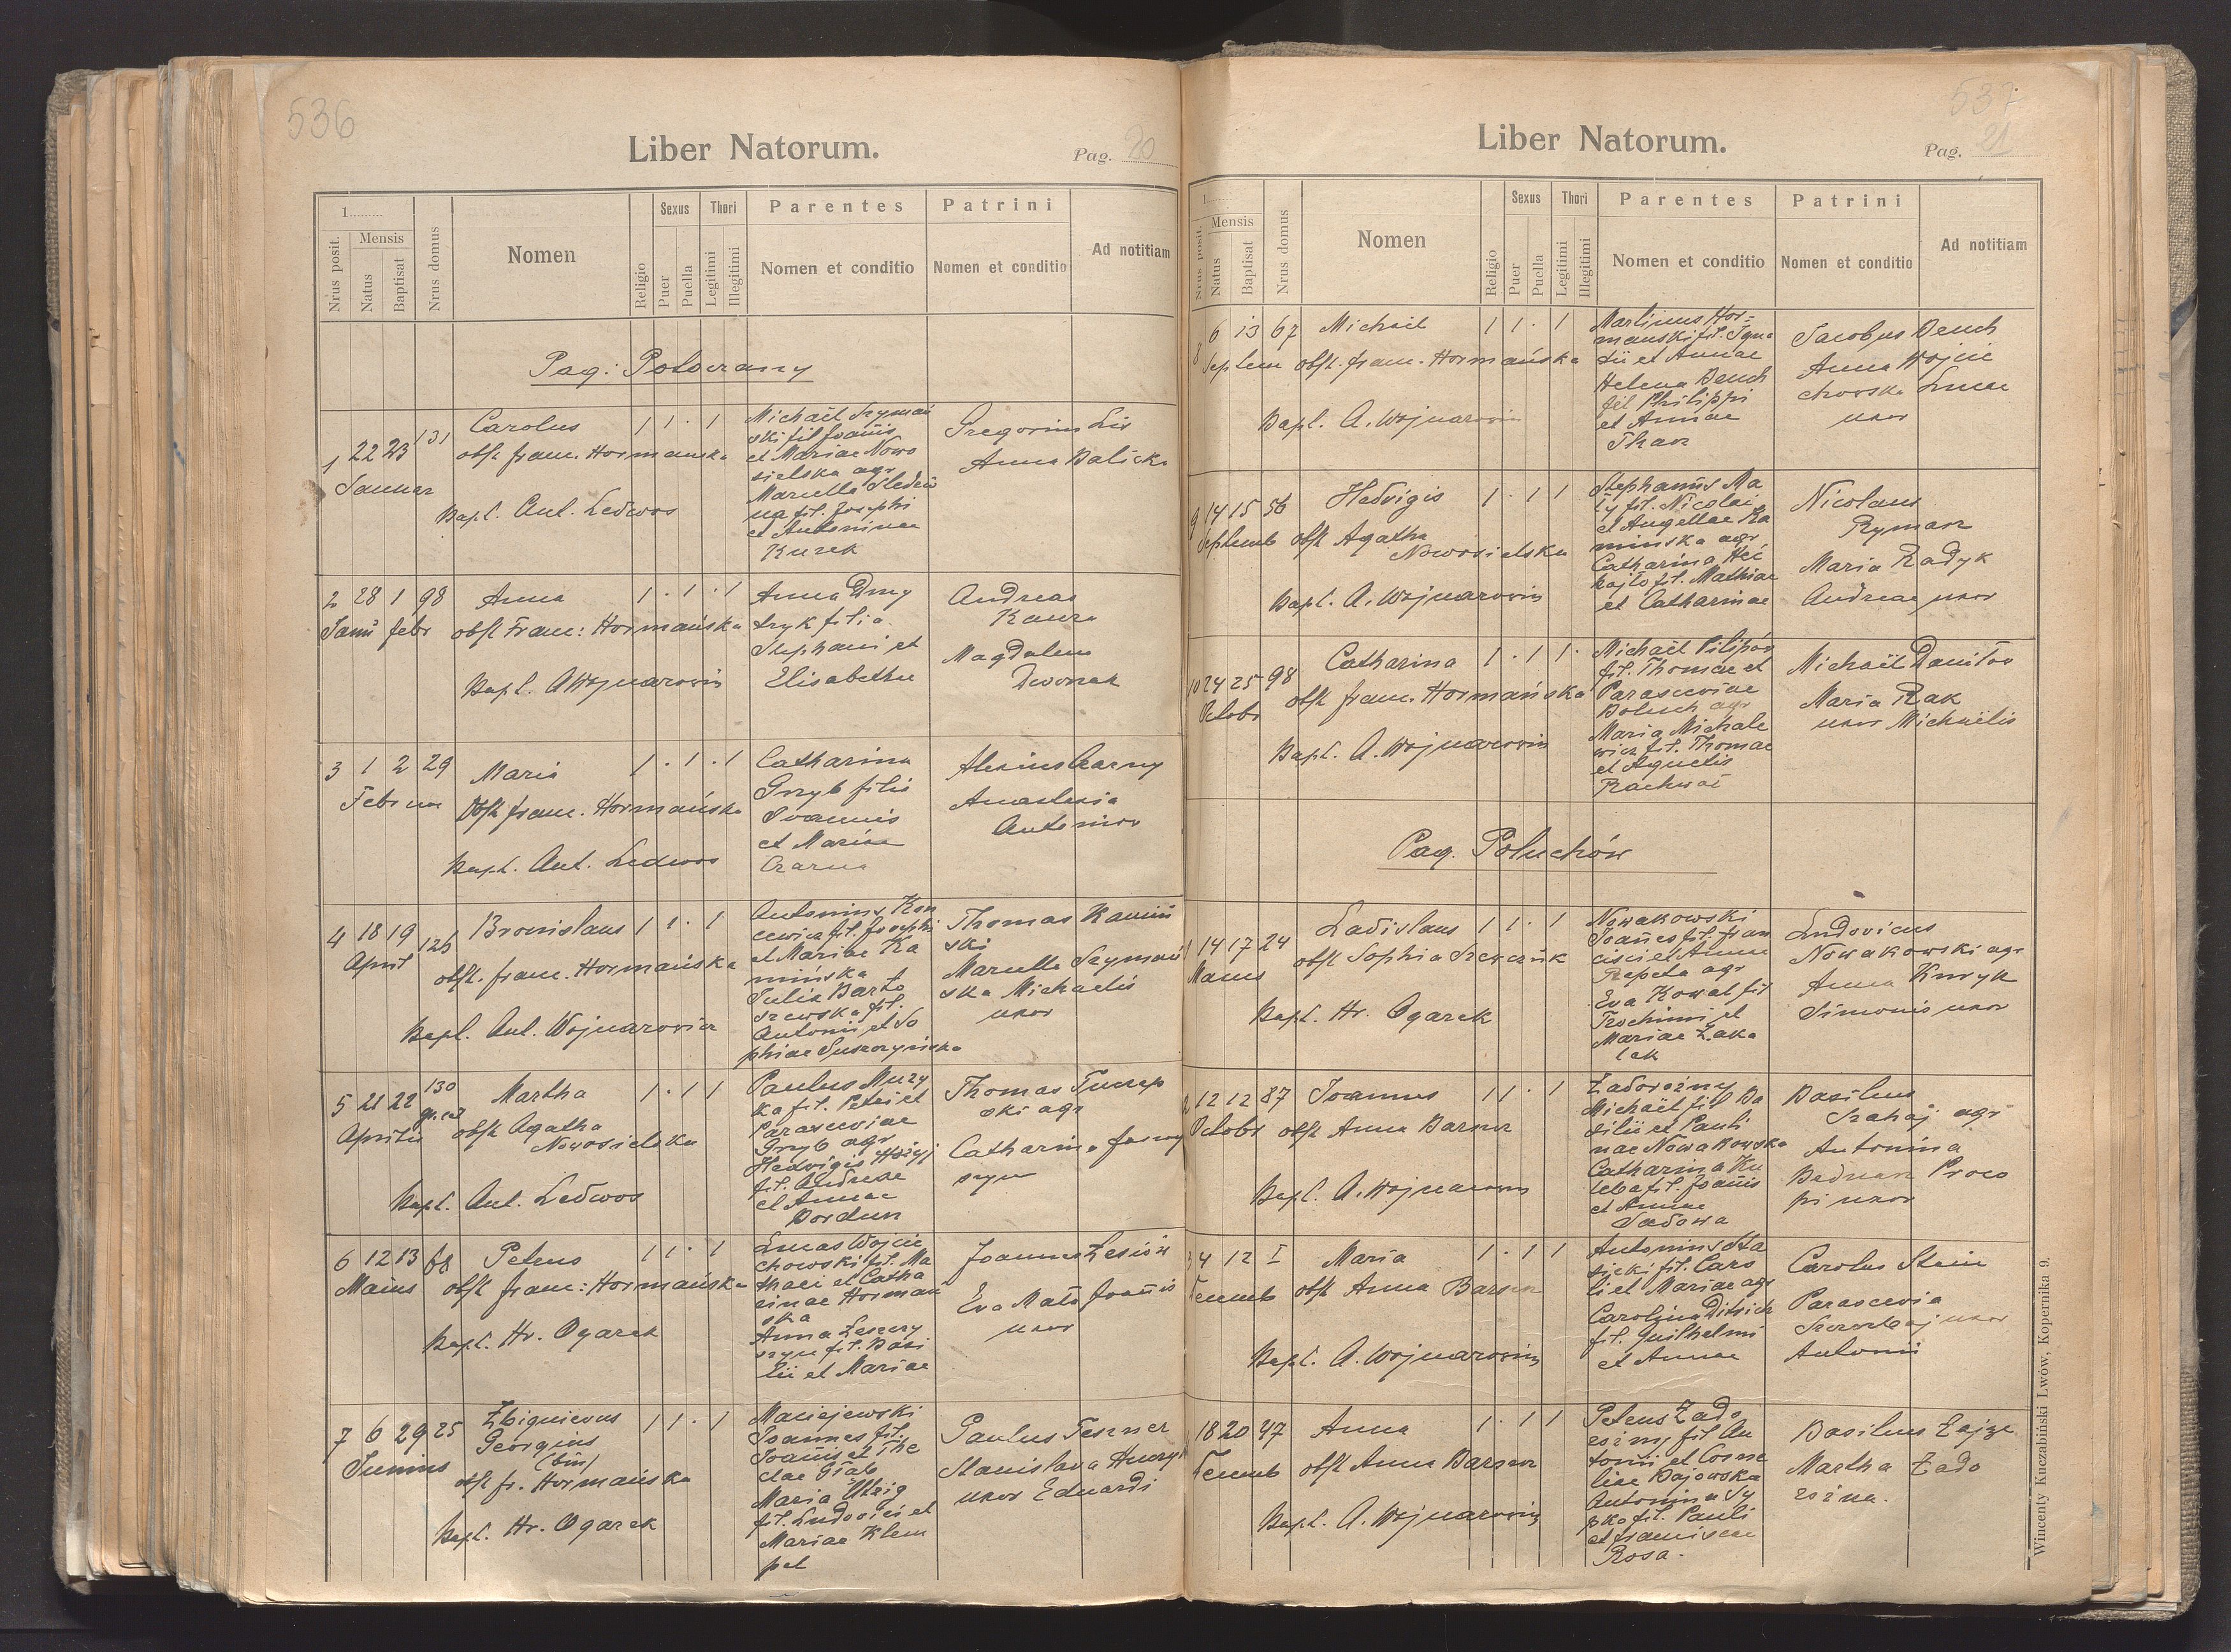 536
Liber Natorum.
Pag. 20
1
Nrus posit.
Mensis
Natus
Baptisat
Nrus domus
Nomen
Religio
Sexus
Puer
Puella
Thori
Legitimi
Illegitimi
Parentes
Nomen et conditio
Patrini
Nomen et conditio
Ad notitiam
Pag:
1 22 23 131 Carolus 1 1 · 1
Januar
obst franc. Hormanska
Bapt. Ant. Ledwos
Michaël Szymań
ski fil Joañis
et Mariae Nowo
sielska agr
Marcella
fil. Josephi
et Antoninae
Kurek
Gregorius Lis
Anna Balicka
2 28 1 98 Anna 1 · 1 · 1
Janu febr
obst Franc: Hormańska
Bapt. A Wojnarowicz
Anna Dmy
tryk filia
Stephani et
Elisabethae
Andreas
Magdalena
Dworzak
3 1 2 29 Maria 1 · 1 · 1
Februar
Obst franc. Hormańska
Bapt. Ant. Ledwos
Catharina
Grzyb filia
Joannis
et Mariae
Czarna
Alexius Czarny
Anastasia
Antoniow
4 18 19 126 Bronislaus 1 1 · 1
April
obst. franc. Hormańska
Bapt. Ant. Wojnarowicz
Antonius Kon
cewicz fil. Josephi
et Mariae Ka
mińska
Julia Barto
szewska fil.
Antonii et So
phiae
Thomas Kamiń
ski
Marcella Szymań
ska Michaelis
uxor
5 21 22 130 Martha 1 · 1 1
gr. cat
Aprilis
obst Agatha
Nowosielska
Bapt. Ant. Ledwos
Paulus Muzy
ka fil. Petri et
Parasceviae
Gryb agr
Hedvigis
fil. Andreae
et Annae
Bordun
Thomas
ski agr
Catharina
szyn
6 12 13 68 Petrus 1 1 · 1
Maius
obst franc: Hormańska
Bapt. Hr. Ogarek
Lucas Wojcie
chowski fil. Ma
thaei et Catha
rinae Horman
ska
Anna Leszczy
szyn fil. Basi
lii et Mariae
Joannes Lesiów
Eva Mató Joañis
uxor
7 6 29 25 Zbignievus 1 1 · 1
Georgius
(bin)
Junius
obst fr. Hormańska
Bapt. Hr. Ogarek
Maciejewski
Joannes fil.
Joañis et The
clae Głąb
Maria Uhrig
fil. Ludovici et
Mariae Klem
pel
Paulus Teszner
Stanislava
uxor Eduardi
537
Liber Natorum.
Pag. 21
1
Nrus posit.
Mensis
Natus
Baptisat
Nrus domus
Nomen
Religio
Sexus
Puer
Puella
Thori
Legitimi
Illegitimi
Parentes
Nomen et conditio
Patrini
Nomen et conditio
Ad notitiam
8 6 13 67 Michael 1 1 · 1
Septem obst. franc. Hormańska
Bapt. A. Wojnarowicz
Martinus Hor-
manski fil. Igna
tii et Annae
Helena Bench
fil Philippi
et Annae
Tkacz
Jacobus Bench
Anna Wojcie
chowska Lucae
uxor
9 14 15 56 Hedvigis 1 · 1 1
Septemb obst Agatha
Nowosielska
Bapt. A. Wojnarowicz
Stephanus Ma
fil. Nicolai
et Angellae Ka
minska agr
Catharina
fil. Mathiae
et Catharinae
Nicolaus
Rymarz
Maria Radyk
Andreae uxor
10 24 25 98 Catharina 1 · 1 1 ·
Octobr obst franc. Hormańska
Bapt. A. Wojnarowicz
Michaël Pilipów
fil. Thomae et
Parasceviae
agr
Maria Michale
wicz fil. Thomae
et Agnetis
Michaël Daniłow
Maria Rak
uxor Michaëlis
Pag. Poluchów
1 14 17 24 Ladislaus 1 1 · 1
Maius
obst Sophia Szewczuk
Bapt. Hr. Ogarek
Nowakowski
Joañes fil. fran
cisci et Annae
Repeta agr
Eva Kowal fil
Trochimi et
Mariae Zaka
lak
Ludovicus
Nowakowski agr
Anna Kmyk
Simonis uxor
2 12 12 87 Joannes 1 1 · 1
Octobr obst Anna Barszcz
Bapt. A. Wojnarowicz
Zadorożny
Michaël fil Ba
silii et Pauli
nae Nowakowska
Catharina Ku
leba fil. Joañis
et Annae
Sadowa
Basilius
agr
Antonina
Bednarz Proco
pi uxor
3 4 12 I Maria 1 · 1 1
obst Anna Barszcz
Bapt. A. Wojnarowicz
Antonius Sta
sicki fil. Caro
li et Mariae agr
Carolina Ditrich
fil. Guilhelmi
et Annae
Carolus Stein
Parascevia
uxor
Antonii
18 20 47 Anna 1 · 1 1
obst Anna Barszcz
Bapt. A. Wojnarowicz
Petrus Zado
rożny fil An
tonii et Corne
liae Bajowska
Antonina Sy
pko fil. Pauli
et franciscae
Rosa.
Basilius
Martha Zado
rożna.
Wincenty Kuczabiński Lwów, Kopernika 9.